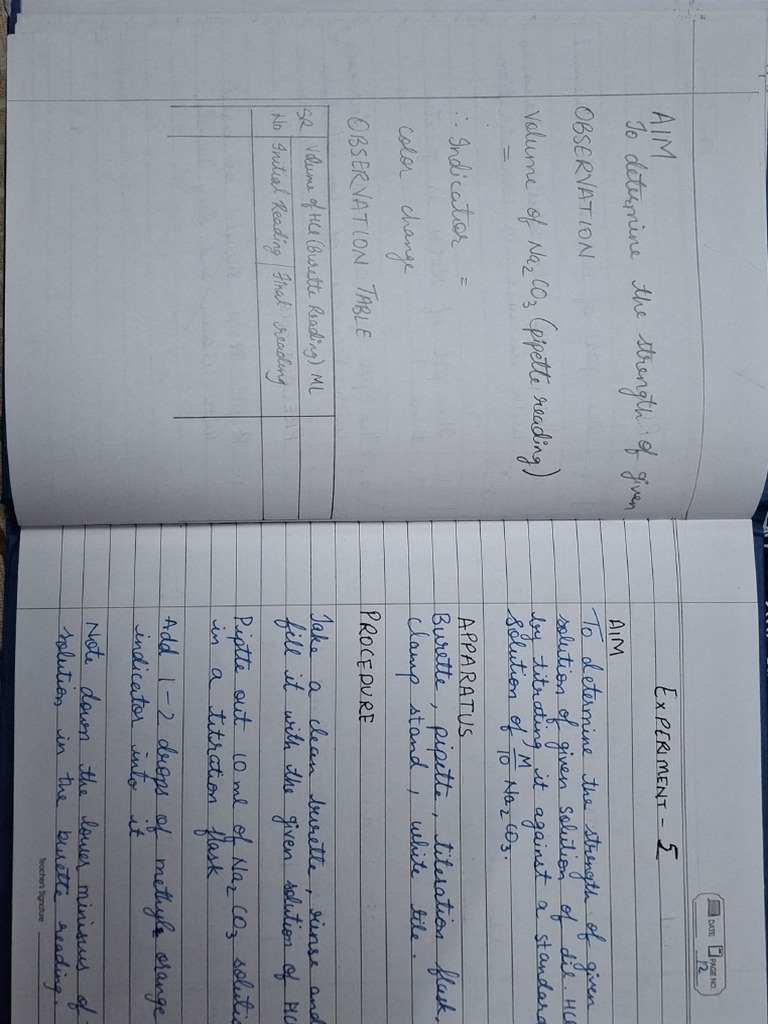 AIM
To determine the strength of given
OBSERVATION
Volume of Na2CO3 (pipette reading)
=
∴ Indicator =
color change
OBSERVATION TABLE
SR Volume of HCl (Burette Reading) ML
No Initial Reading Final reading
DATE PAGE NO.
12
EXPERIMENT - 5
AIM
To determine the strength of given
solution of given solution of dil. HCl
by titrating it against a standard
solution of M/10 Na2CO3.
APPARATUS
Burette, pipette, titeration flask,
clamp stand, white tile.
PROCEDURE
Take a clean burette, rinse and
fill it with the given solution of HCl
Piptte out 10 ml of Na2CO3 solutio
in a titration flask
Add 1-2 drops of methyle orange
indicator into it
Note down the lower miniscus of
solution in the burette reading.
Teacher's Signature